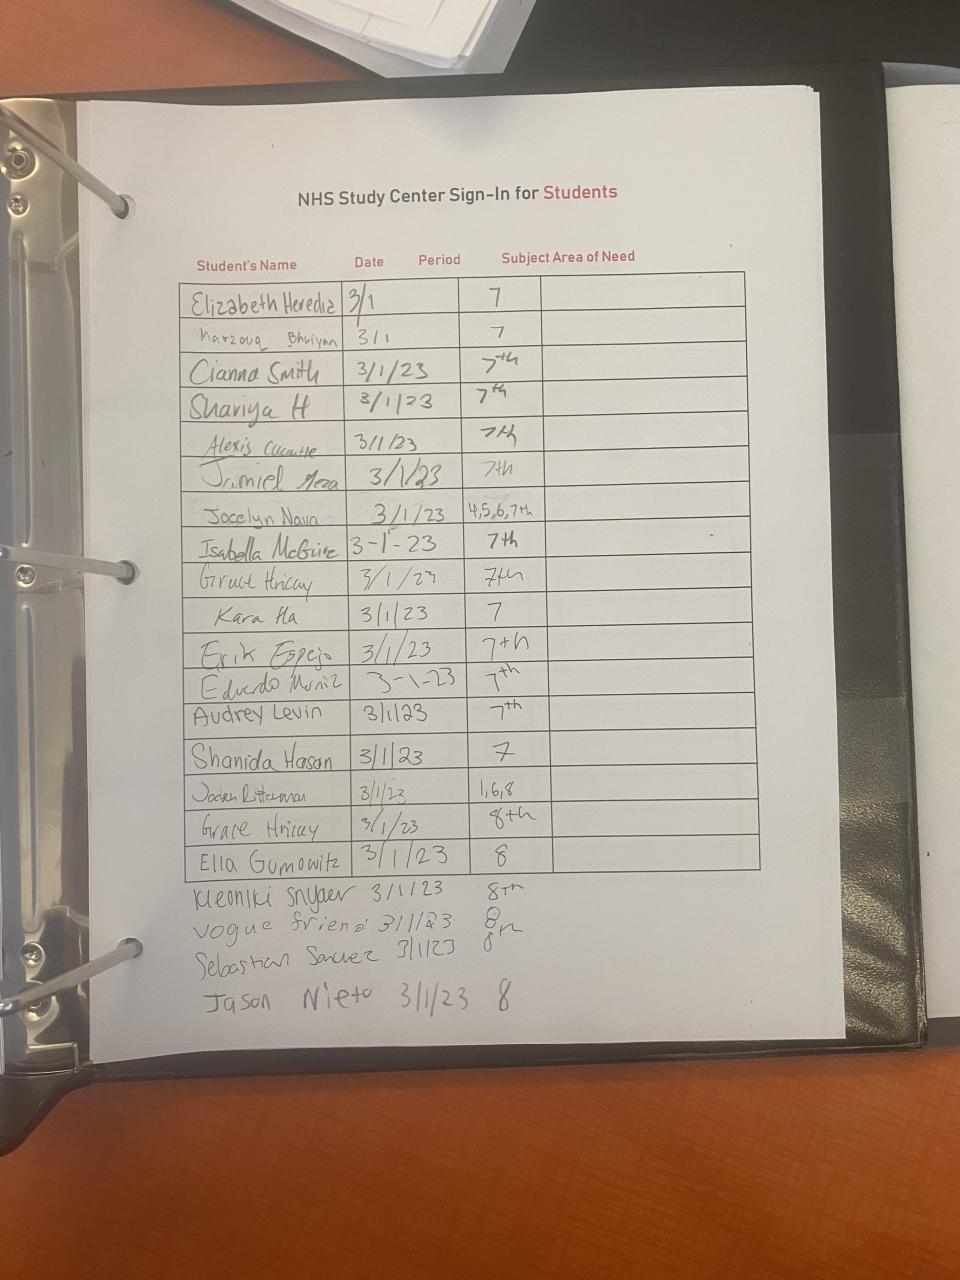 NHS Study Center Sign-In for Students
Student's Name Date Period Subject Area of Need
Elizabeth Heredia 3/1 7
Marzouq Bhuiyan 3/1 7
Cianna Smith 3/1/23 7th
Shariya H 3/1/23 7th
Alexis 3/1/23 7th
Jamiel Meza 3/1/23 7th
Jocelyn Nava 3/1/23 4,5,6,7th
Isabella McGuire 3-1-23 7th
Grace Hricay 3/1/23 7th
Kara Ha 3/1/23 7
Erik Espejo 3/1/23 7th
Eduardo Muniz 3-1-23 7th
Audrey Levin 3/1/23 7th
Shanida Hasan 3/1/23 7
3/1/23 1,6,8
Grace Hricay 3/1/23 8th
Ella Gumowitz 3/1/23 8
Kleoniki Snyder 3/1/23 8th
vogue friend 3/1/23 8
Sebastian 3/1/23 8th
Jason Nieto 3/1/23 8